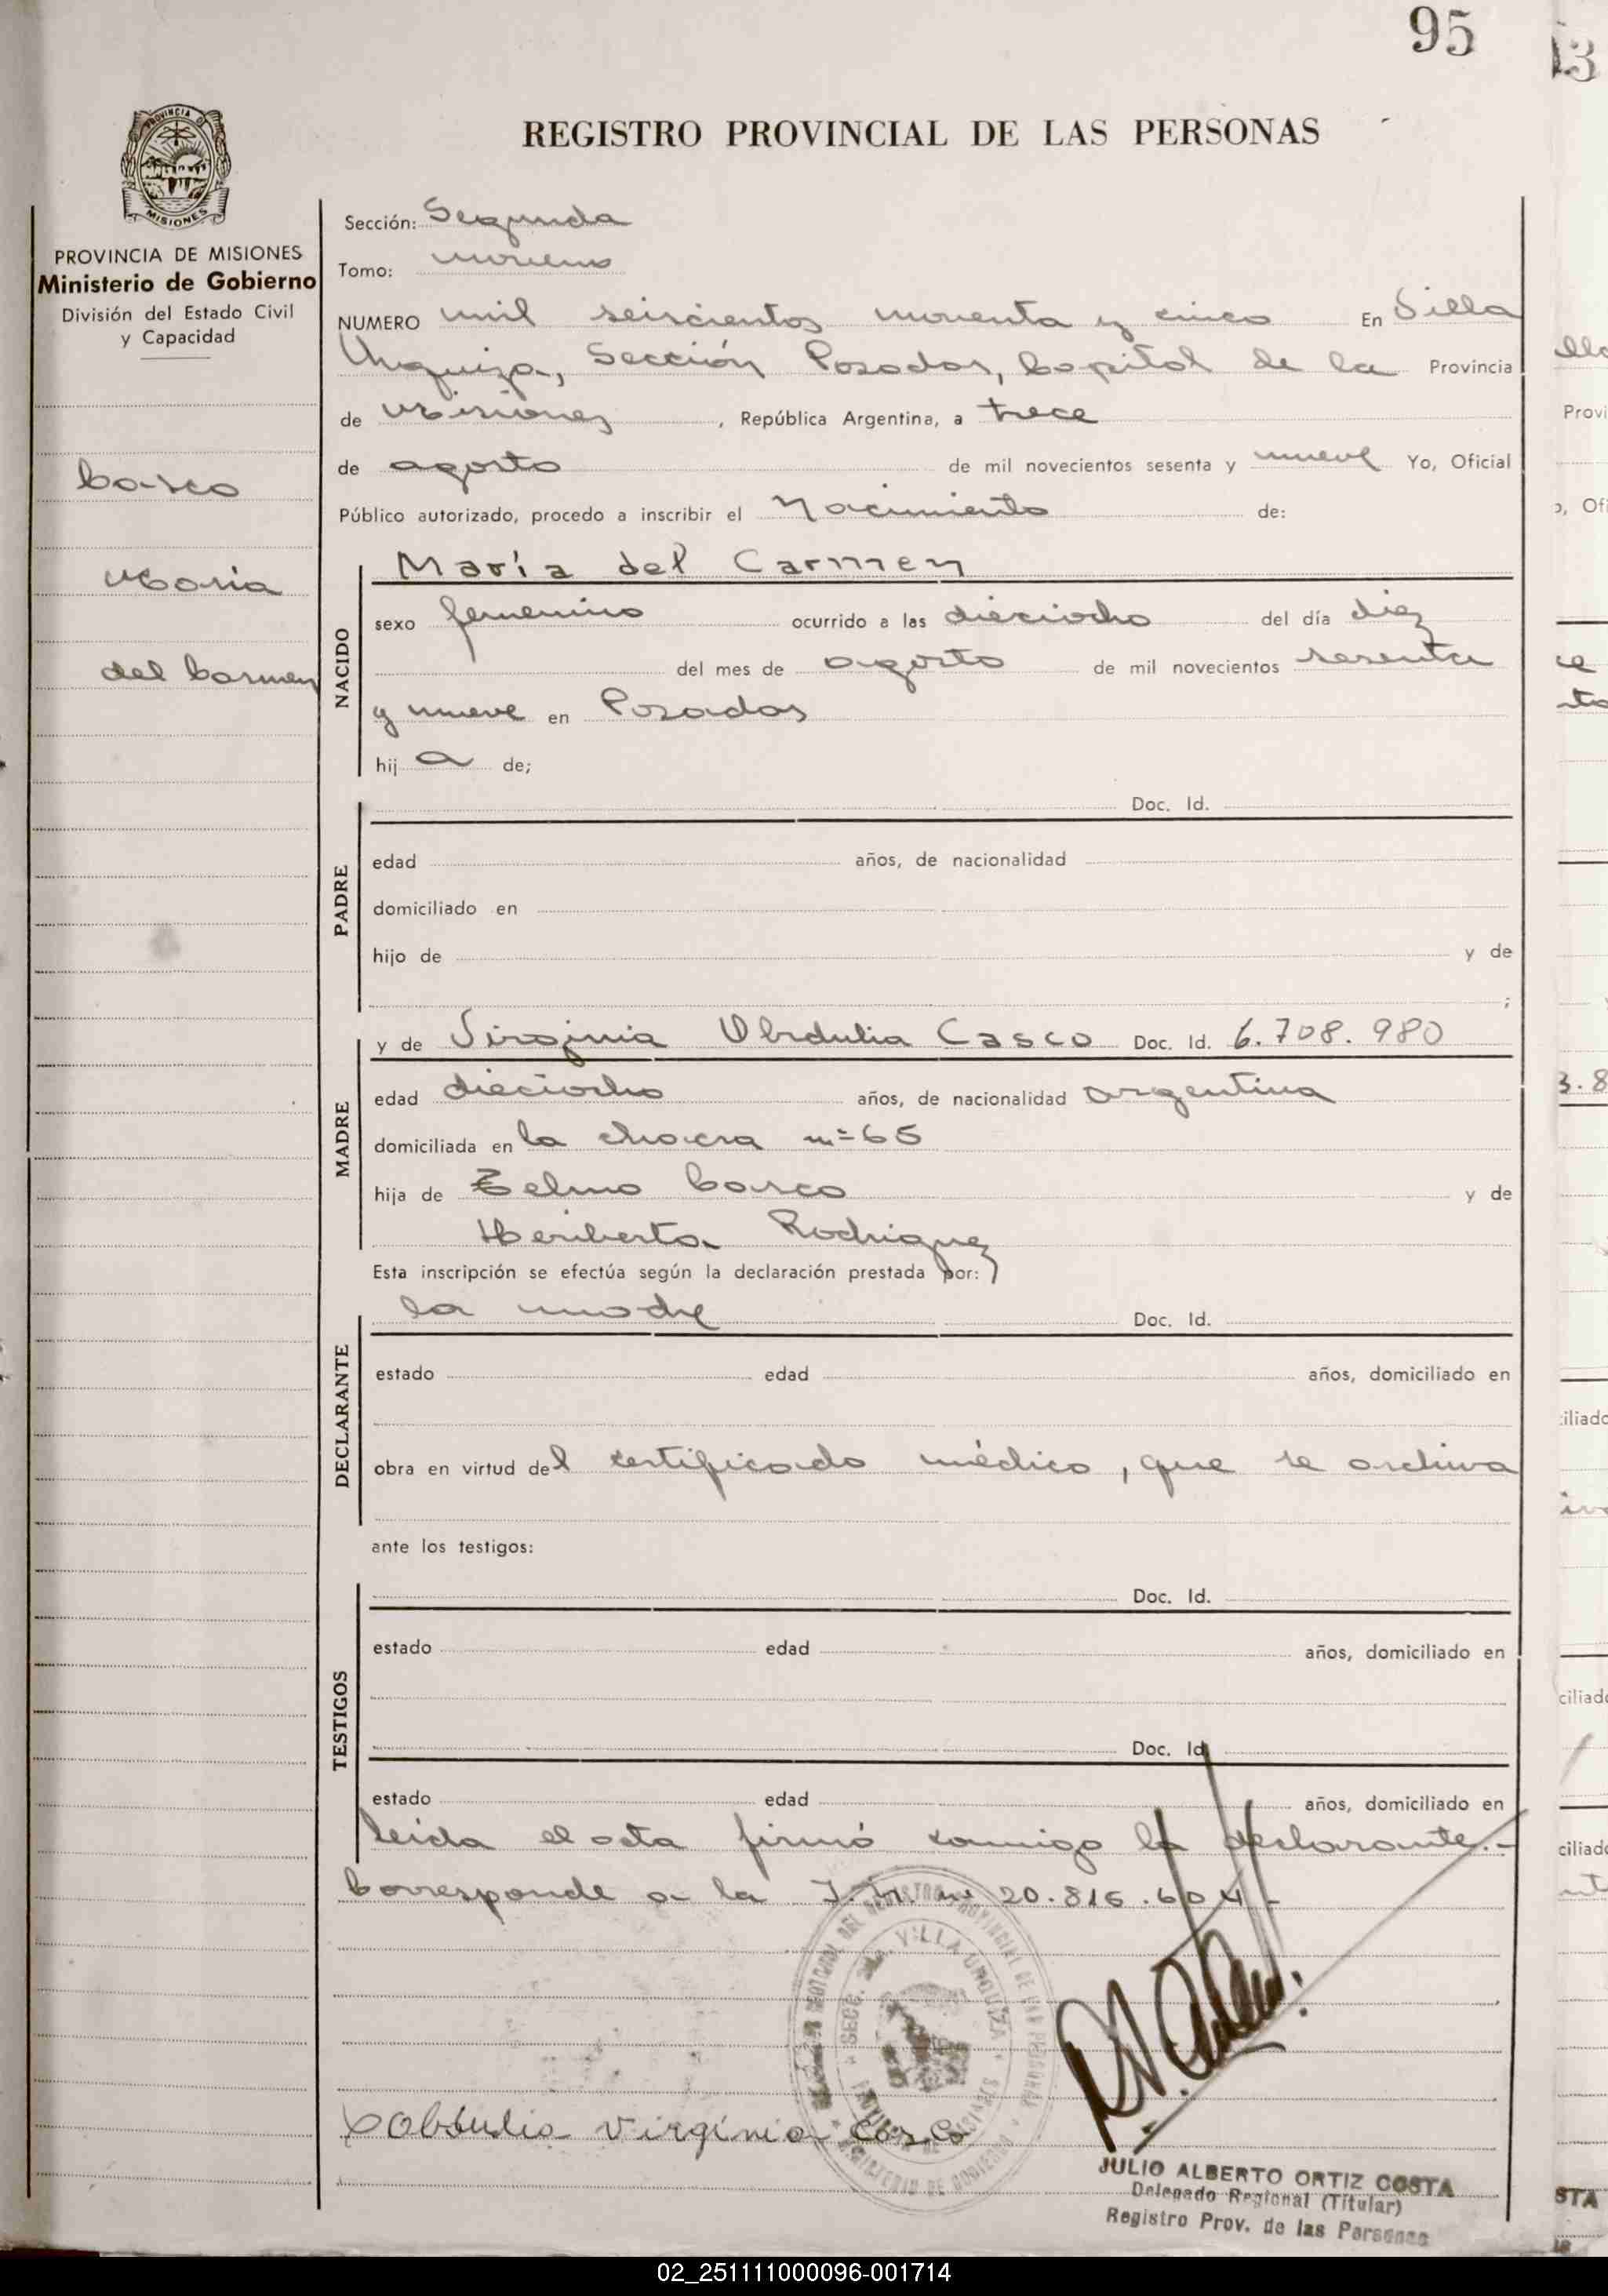 95
REGISTRO PROVINCIAL DE LAS PERSONAS
PROVINCIA DE MISIONES
Ministerio de Gobierno
División del Estado Civil
y Capacidad
Casco
Maria
del Carmen
Sección: Segunda
Tomo: noveno
NUMERO mil seiscientos noventa y cinco En Villa
Urquiza, Sección Posadas, Capital de la Provincia
de Misiones, República Argentina, a trece
de agosto de mil novecientos sesenta y nueve Yo, Oficial
Público autorizado, procedo a inscribir el Nacimiento de:
NACIDO
María del Carmen
sexo femenino ocurrido a las dieciocho del día diez
del mes de agosto de mil novecientos sesenta
y nueve en Posadas
hija de;
PADRE
Doc. Id.
edad años, de nacionalidad
domiciliado en
hijo de y de
;
MADRE
y de Virginia Obdulia Casco Doc. Id. 6.708.980
edad dieciocho años, de nacionalidad argentina
domiciliada en la chacra nº 65
hija de Telmo Casco y de
Heriberta Rodriguez
Esta inscripción se efectúa según la declaración prestada por:
DECLARANTE
la madre Doc. Id.
estado edad años, domiciliado en
obra en virtud del certificado médico, que se archiva
ante los testigos:
TESTIGOS
Doc. Id.
estado edad años, domiciliado en
Doc. Id.
estado edad años, domiciliado en
leida el acta firmó conmigo la declarante.-
Corresponde a la nº 20.816.604-
SECC. VILLA URQUIZA
MINISTERIO DE GOBIERNO
Obdulia Virginia Casco
JULIO ALBERTO ORTIZ COSTA
Delegado Regional (Titular)
Registro Prov. de las Personas
02_251111000096-001714